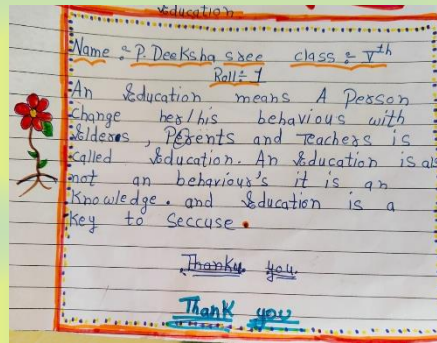 Education
Name : P. Deeksha sree class : Vth
Roll : 1
An Education means A Person
change her/his behavious with
Elders, Perents and Teachers is
called Education. An Education is als
not an behaviour's it is an
Knowledge. and Education is a
key to seccuse.
Thanku you.
Thank you